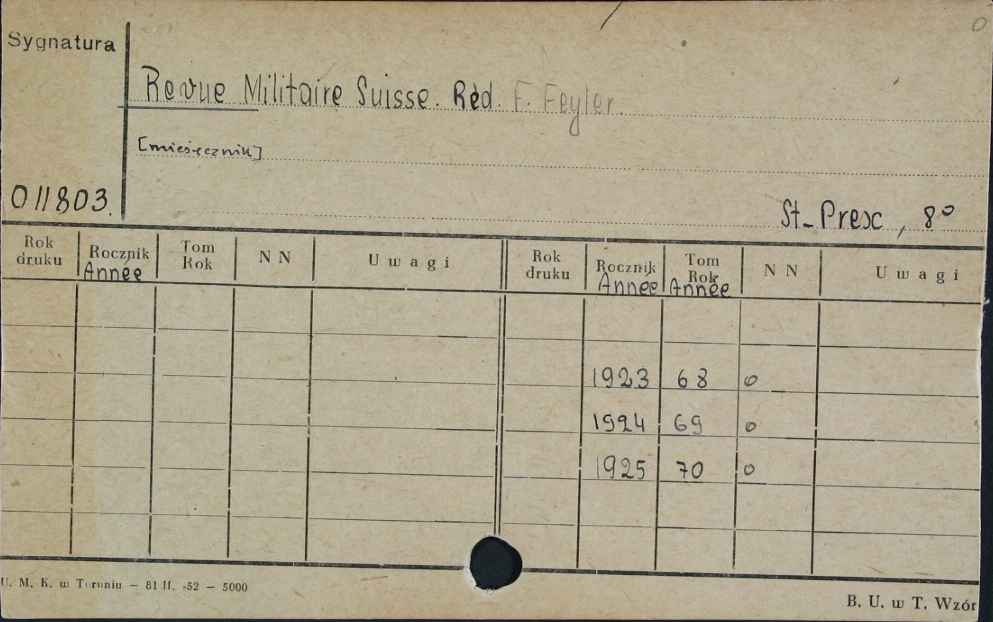 Sygnatura
Revue Militaire Suisse. Réd. F. Feyler.
[miesięcznik]
011803.
St-Presc, 8°
Rok druku Rocznik Année Tom Rok N N Uwagi Rok druku Rocznik Année Tom Rok Année N N Uwagi
1923 68 0
1924 69 0
1925 70 0
U. M. K. w Toruniu – 81 II. -52 – 5000
B. U. w T. Wzór